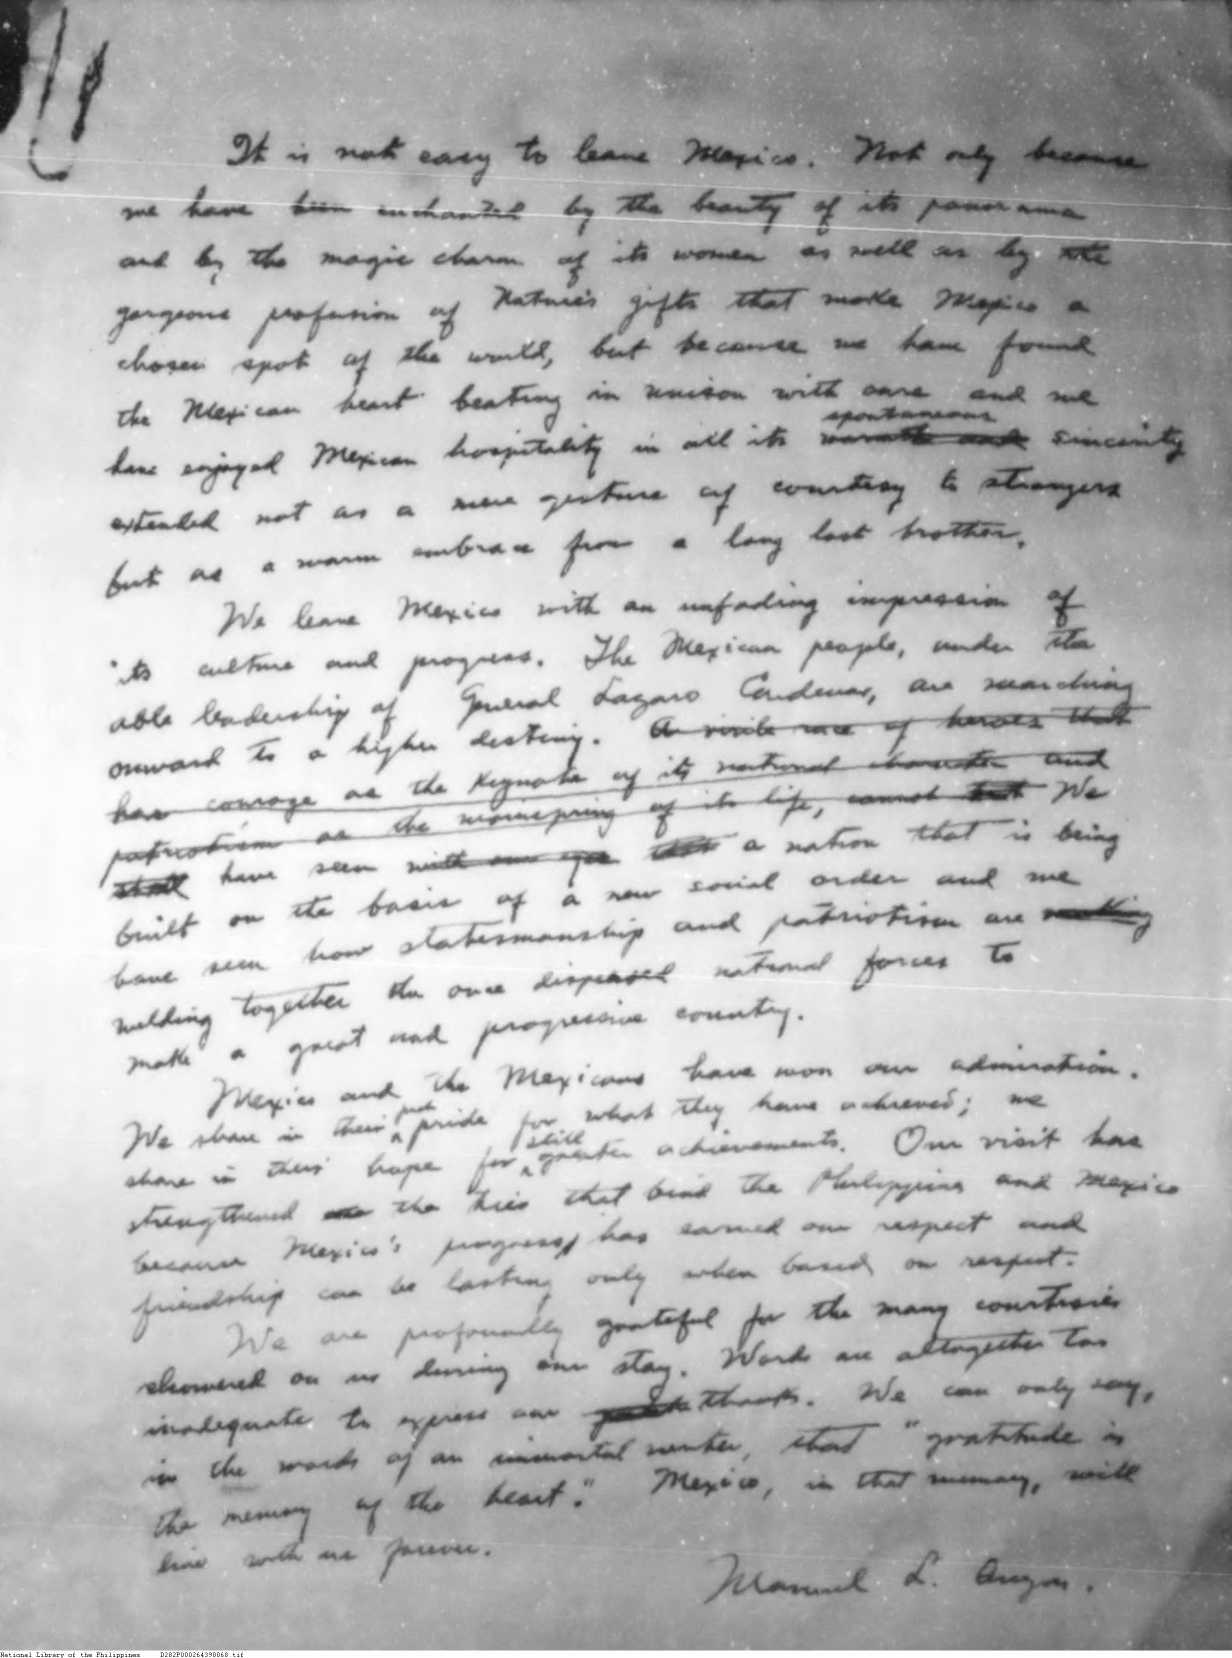 It is not easy to leave Mexico. Not only because
we have been enchanted by the beauty of its panorama
and by the magic charm of its women as well as by the
gorgeous profusion of Nature's gifts that make Mexico a
chosen spot of the world, but because we have found
the Mexican heart beating in unison with ours and we
spontaneous
have enjoyed Mexican hospitality in all its warmth and sincerity
extended not as a mere gesture of courtesy to strangers
but as a warm embrace from a long lost brother.
We leave Mexico with an unfading impression of
its culture and progress. The Mexican people, under the
able leadership of General Lazaro Cardenas, are marching
onward to a higher destiny. A virile race of heroes that
has courage as the keynote of its national character and
patriotism as the mainspring of its life, cannot but We
shall have seen with our eyes that a nation that is being
built on the basis of a new social order and we
have seen how statesmanship and patriotism are
welding together the once dispersed national forces to
make a great and progressive country.
Mexico and the Mexicans have won our admiration.
just
We share in their pride for what they have achieved; we
still
share in their hope for greater achievements. Our visit has
strengthened the ties that bind the Philippines and Mexico
because Mexico's progress has earned our respect and
friendship can be lasting only when based on respect.
We are profoundly grateful for the many courtesies
showered on us during our stay. Words are altogether too
inadequate to express our thanks. We can only say,
in the words of an immortal writer, that "gratitude is
the memory of the heart." Mexico, in that memory, will
live with us forever.
Manuel L. Quezon.
National Library of the Philippines D282P000264390068.tif